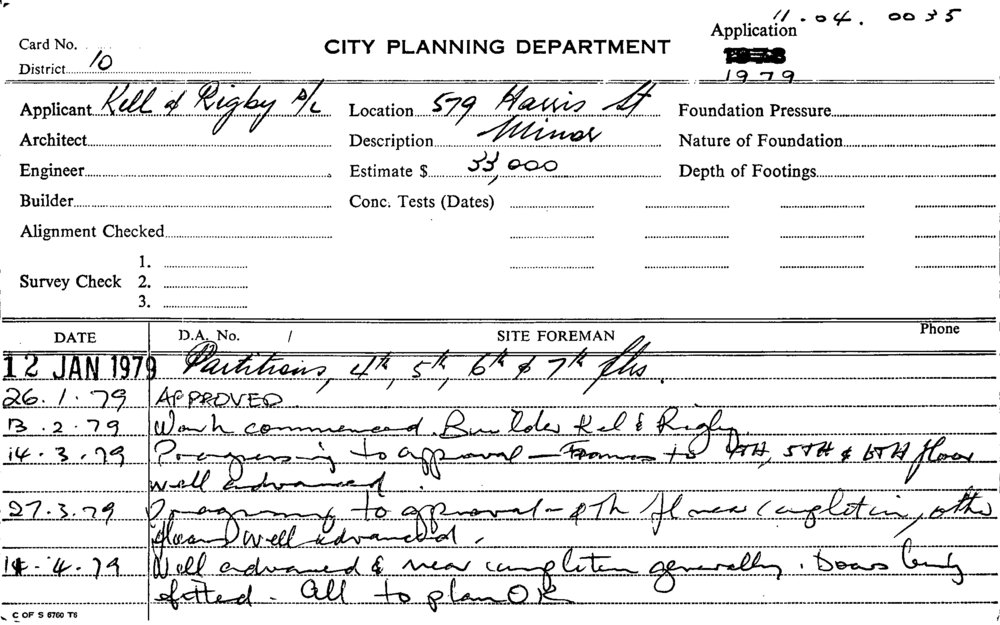 11.04.0035
Application
Card No.
CITY PLANNING DEPARTMENT
District 10
1979
Applicant Kell & Rigby P/L Location 579 Harris St Foundation Pressure
Architect Description Minor Nature of Foundation
Engineer Estimate $ 33,000 Depth of Footings
Builder Conc. Tests (Dates)
Alignment Checked
1.
Survey Check 2.
3.
DATE D.A. No. / SITE FOREMAN Phone
12 JAN 1979 Partitions, 4th, 5th, 6th & 7th flrs.
26.1.79 APPROVED
13.2.79 Work commenced. Builder Kel & Rigby.
14.3.79 Progressing to approval - Frames to 4TH, 5TH & 6TH floor
well advanced.
27.3.79 Progressing to approval - 4Th fl near completion, other
floors well advanced.
4.79 Well advanced & near completion generally. Doors being
fitted. All to plan OK
C OF S 6760 T6